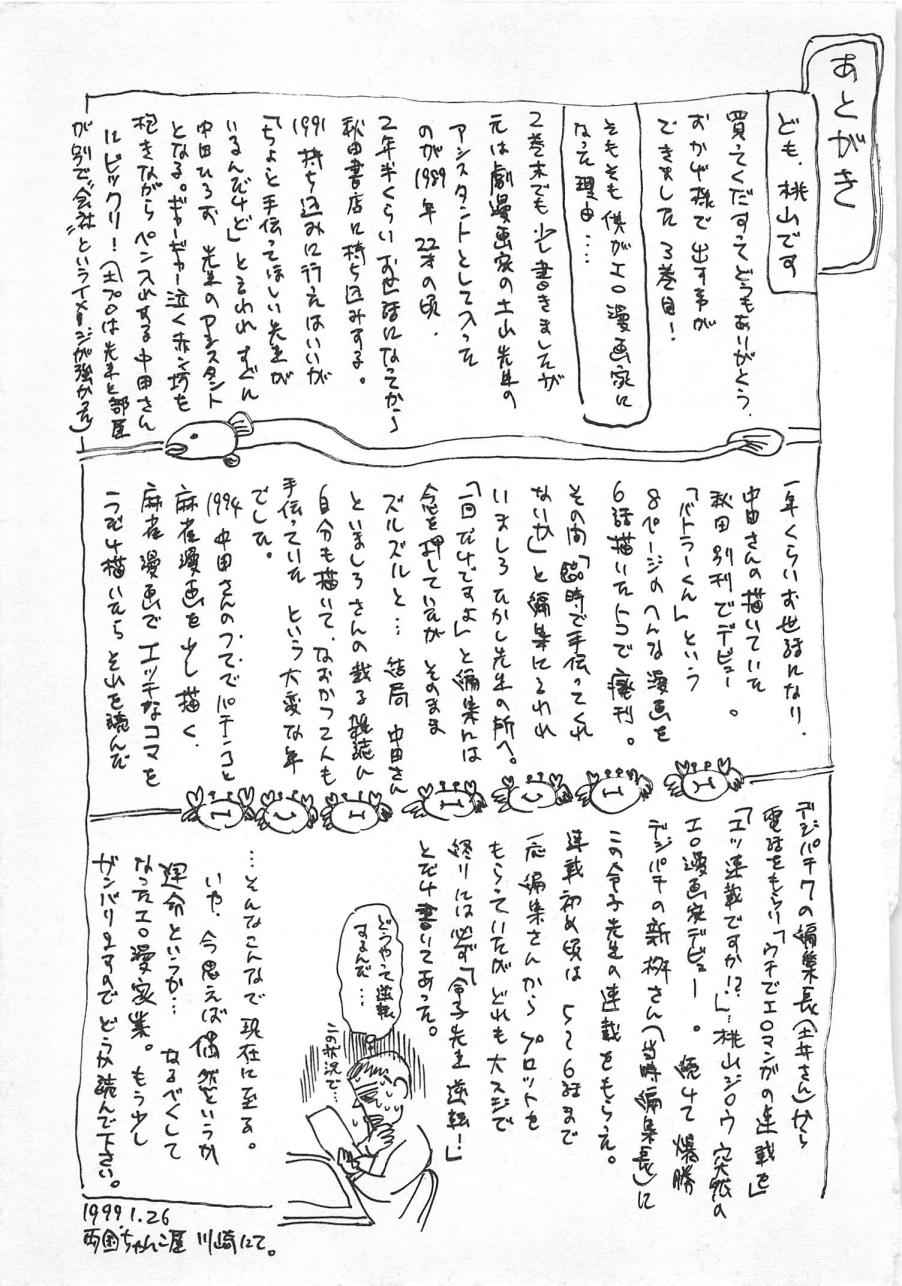 あとがき
ども、桃山です
買ってくだすってどうもありがとう。
おかげ様で出す事が
できました3巻目!
そもそも僕がエロ漫画家に
なった理由…
2巻末でも少し書きましたが
元は劇漫画家の土山先生の
アシスタントとして入った
のが1989年22才の頃.
2年半くらいお世話になってから
秋田書店に持ち込みする。
1991 持ち込みに行えはいいが
「ちょっと手伝ってほしい先生が
いるんだけど」と言われすぐに
中田ひろお 先生のアシスタント
となる。ギャーギャー泣く赤ン坊を
抱きながらペン入れする中田さん
にビックリ!(土プロは先生と部屋
が別で"会社"というイメージが強かった)
一年くらいお世話になり.
中田さんの描いていた
秋田 別刊でデビュー。
「バトラーくん」という
8ページのへんな漫画を
6話描いたトコで廃刊。
その間「臨時で手伝ってくれ
ないか」と編集に言われ
いましろたかし先生の所へ。
「一回だけですよ」と編集には
念を押していたが そのまま
ズルズルと… 結局 中田さん
といましろさんの載る雑誌に
自分も描いて、なおかつ二人も
手伝っていた という大変な年
でした。
1994 中田さんのツテでパチンコと
麻雀漫画を少し描く.
麻雀漫画でエッチなコマを
うだけ描いたら それを読んだ
エ
ビ
エ
エ
ビ
エ
デジパチ7の編集長(土井さん)から
電話をもらい「ウチでエロマンガの連載を」
「エッ連載ですか!?」…桃山ジロウ 突然の
エロ漫画家デビュー。 続けて 爆勝
デジパチの新桝さん(当時編集長)に
この令子先生の連載をもらった。
連載初め頃は 5〜6話まで
一応編集さんから プロットを
もらっていたが どれも大スジで
終りには必ず「令子先生 逆転!」
とだけ書いてあった。
どうやって逆転
するんだ…
この状況で…
…そんなこんなで現在に至る。
いや、今思えば偶然というか
運命というか… なるべくして
なったエロ漫家業。もう少し
ガンバリますので どうか読んで下さい。
1999 1.26
両国"ちゃんこ屋 川崎"にて。